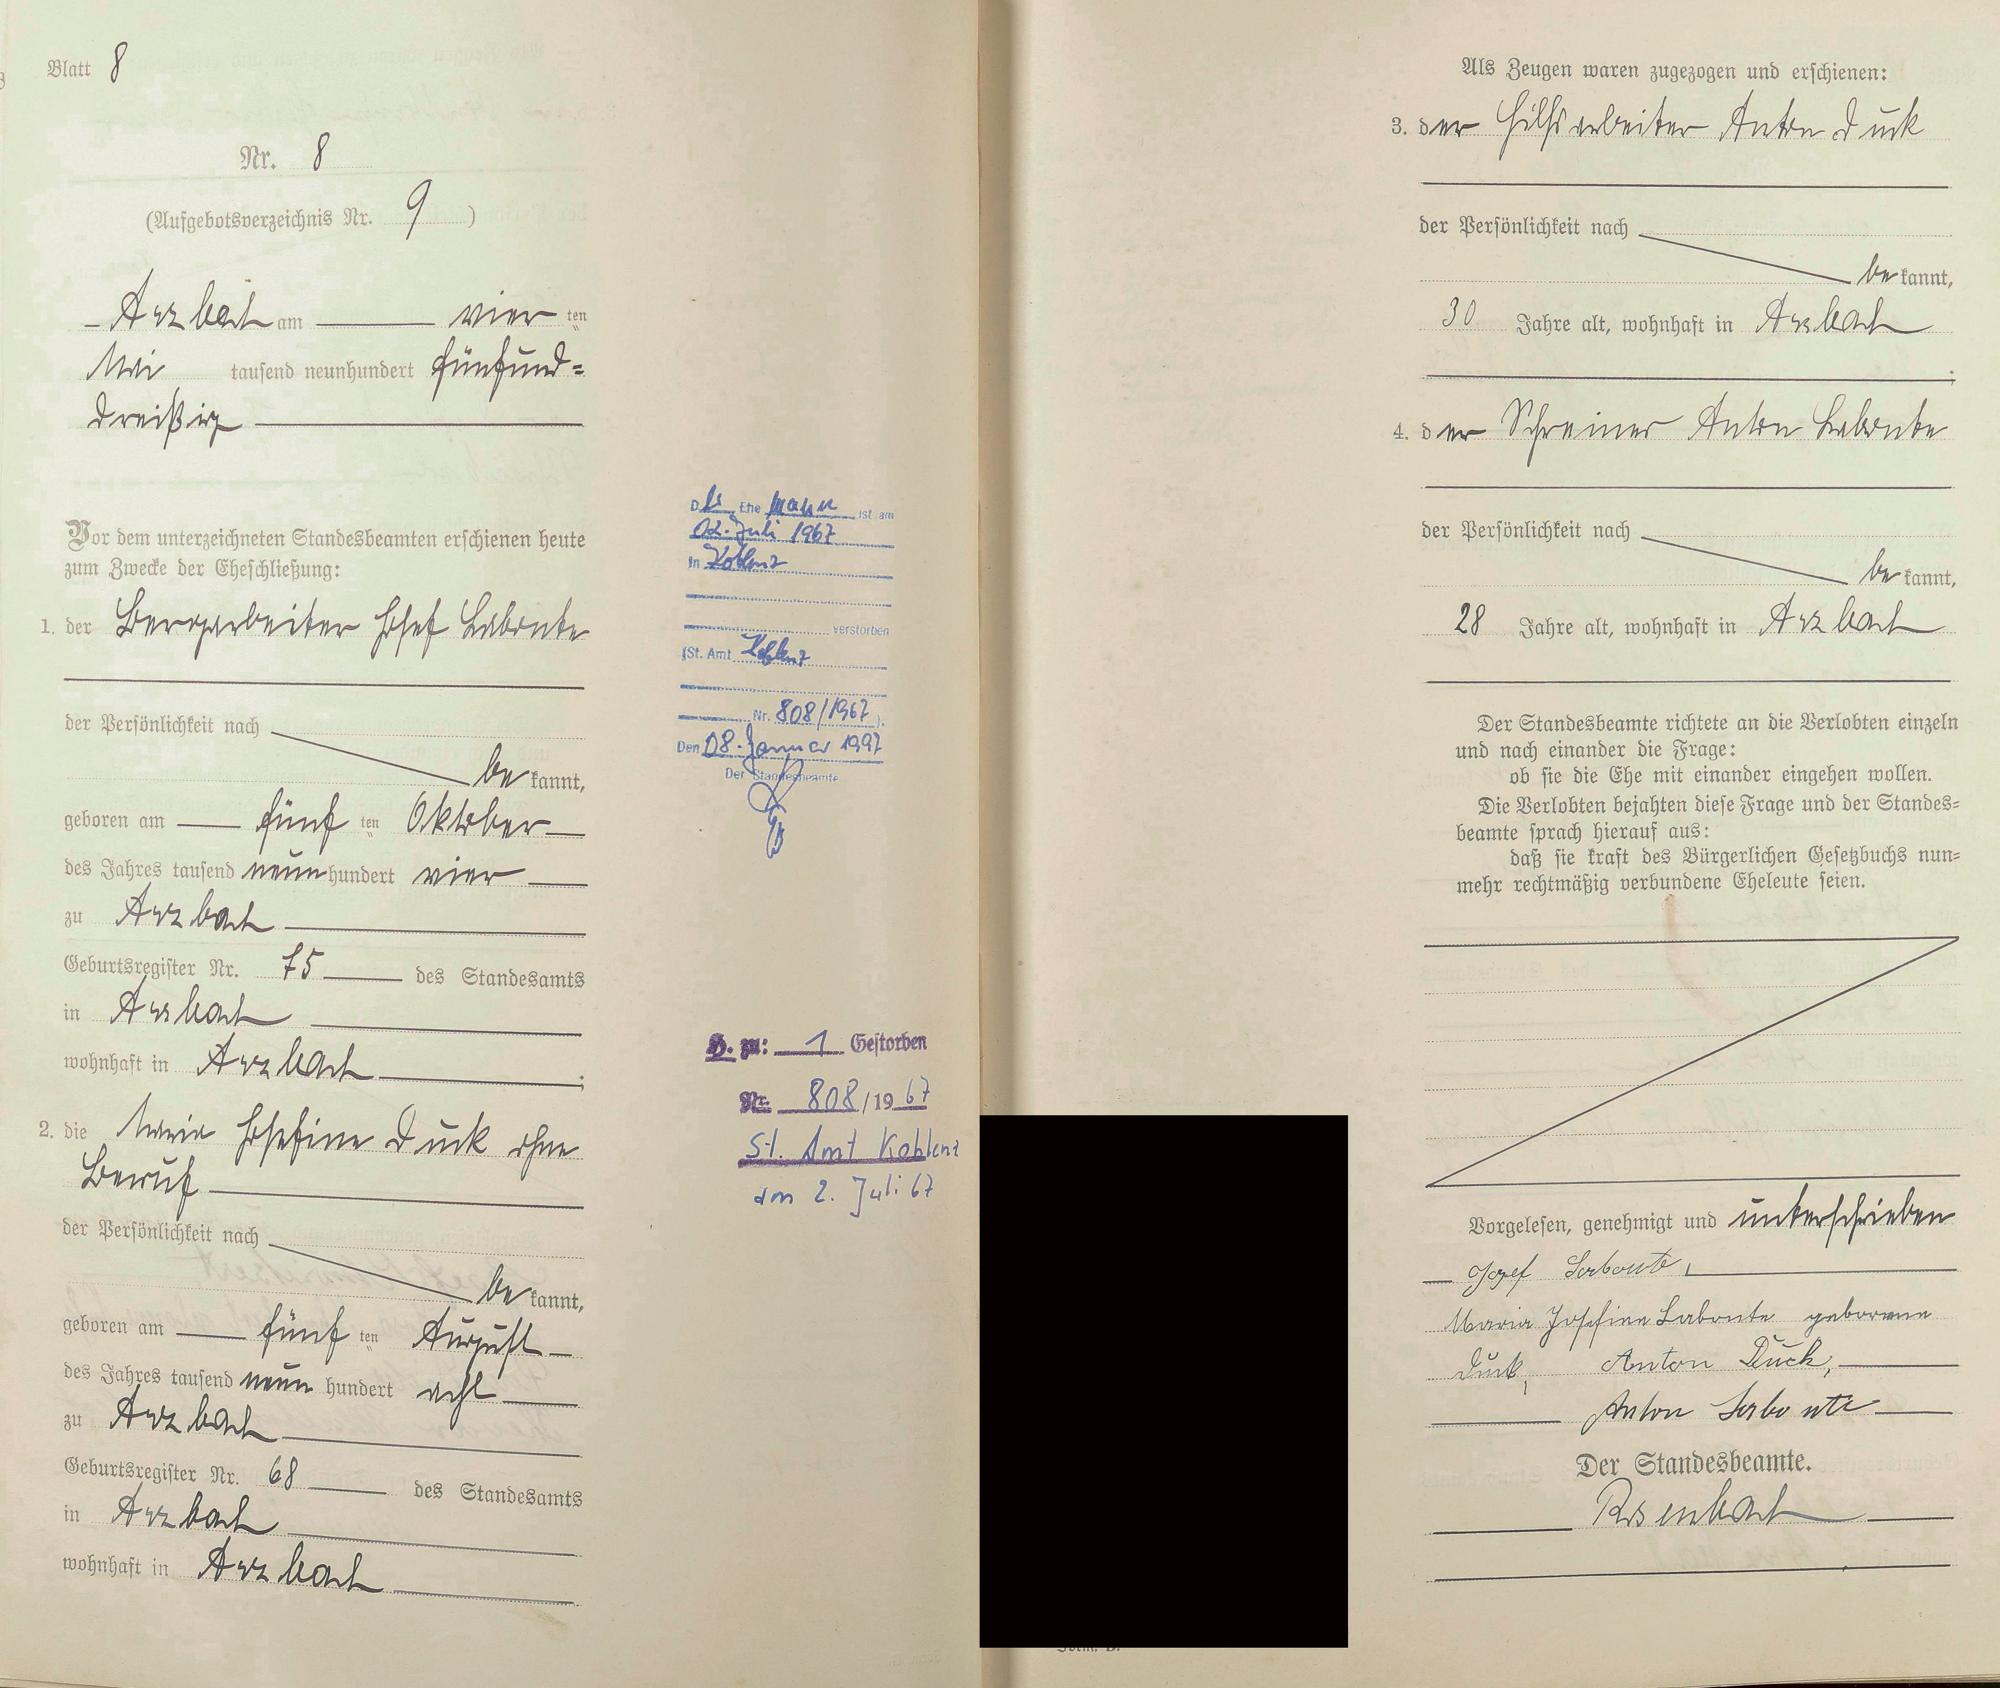 Blatt 8
Nr. 8
(Aufgebotsverzeichnis Nr. 9)
Arzbach am vier ten
Mai tausend neunhundert fünfund=
dreißig
Vor dem unterzeichneten Standesbeamten erschienen heute
zum Zwecke der Eheschließung:
1. der Bergarbeiter Josef Labonte
der Persönlichkeit nach
be kannt,
geboren am fünf ten Oktober
des Jahres tausend neun hundert vier
zu Arzbach
Geburtsregister Nr. 75 des Standesamts
in Arzbach
wohnhaft in Arzbach ;
2. die Maria Josefine Duck ohne
Beruf
der Persönlichkeit nach
be kannt,
geboren am fünf ten August
des Jahres tausend neun hundert acht
zu Arzbach
Geburtsregister Nr. 68 des Standesamts
in Arzbach
wohnhaft in Arzbach
Der Ehe mann ist am
02. Juli 1967
in Koblenz
verstorben
(St. Amt Koblenz
Nr. 808/1967 ).
Den 08. Januar 1997
Der Standesbeamte
H. zu: 1 Gestorben
Nr. 808/1967
St. Amt Koblenz
am 2. Juli 67
Als Zeugen waren zugezogen und erschienen:
3. der Hilfsarbeiter Anton Duck
der Persönlichkeit nach
be kannt,
30 Jahre alt, wohnhaft in Arzbach
;
4. der Schreiner Anton Labonte
der Persönlichkeit nach
be kannt,
28 Jahre alt, wohnhaft in Arzbach
Der Standesbeamte richtete an die Verlobten einzeln
und nach einander die Frage:
ob sie die Ehe mit einander eingehen wollen.
Die Verlobten bejahten diese Frage und der Standes=
beamte sprach hierauf aus:
daß sie kraft des Bürgerlichen Gesetzbuchs nun=
mehr rechtmäßig verbundene Eheleute seien.
Vorgelesen, genehmigt und unterschrieben
Josef Labonte,
Maria Josefine Labonte geborene
Duck, Anton Duck,
Anton Labonte
Der Standesbeamte.
Rosenbach